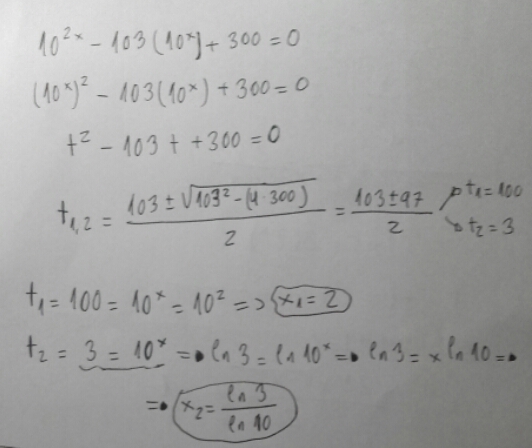 10²ˣ - 103(10ˣ) + 300 = 0
(10ˣ)² - 103(10ˣ) + 300 = 0
t² - 103t + 300 = 0
t₁,₂ = (103 ± √(103² - (4·300))) / 2 = (103 ± 97) / 2 → t₁ = 100
→ t₂ = 3
t₁ = 100 = 10ˣ = 10² => x₁ = 2
t₂ = 3 = 10ˣ => ln 3 = ln 10ˣ => ln 3 = x ln 10 =>
=> x₂ = ln 3 / ln 10